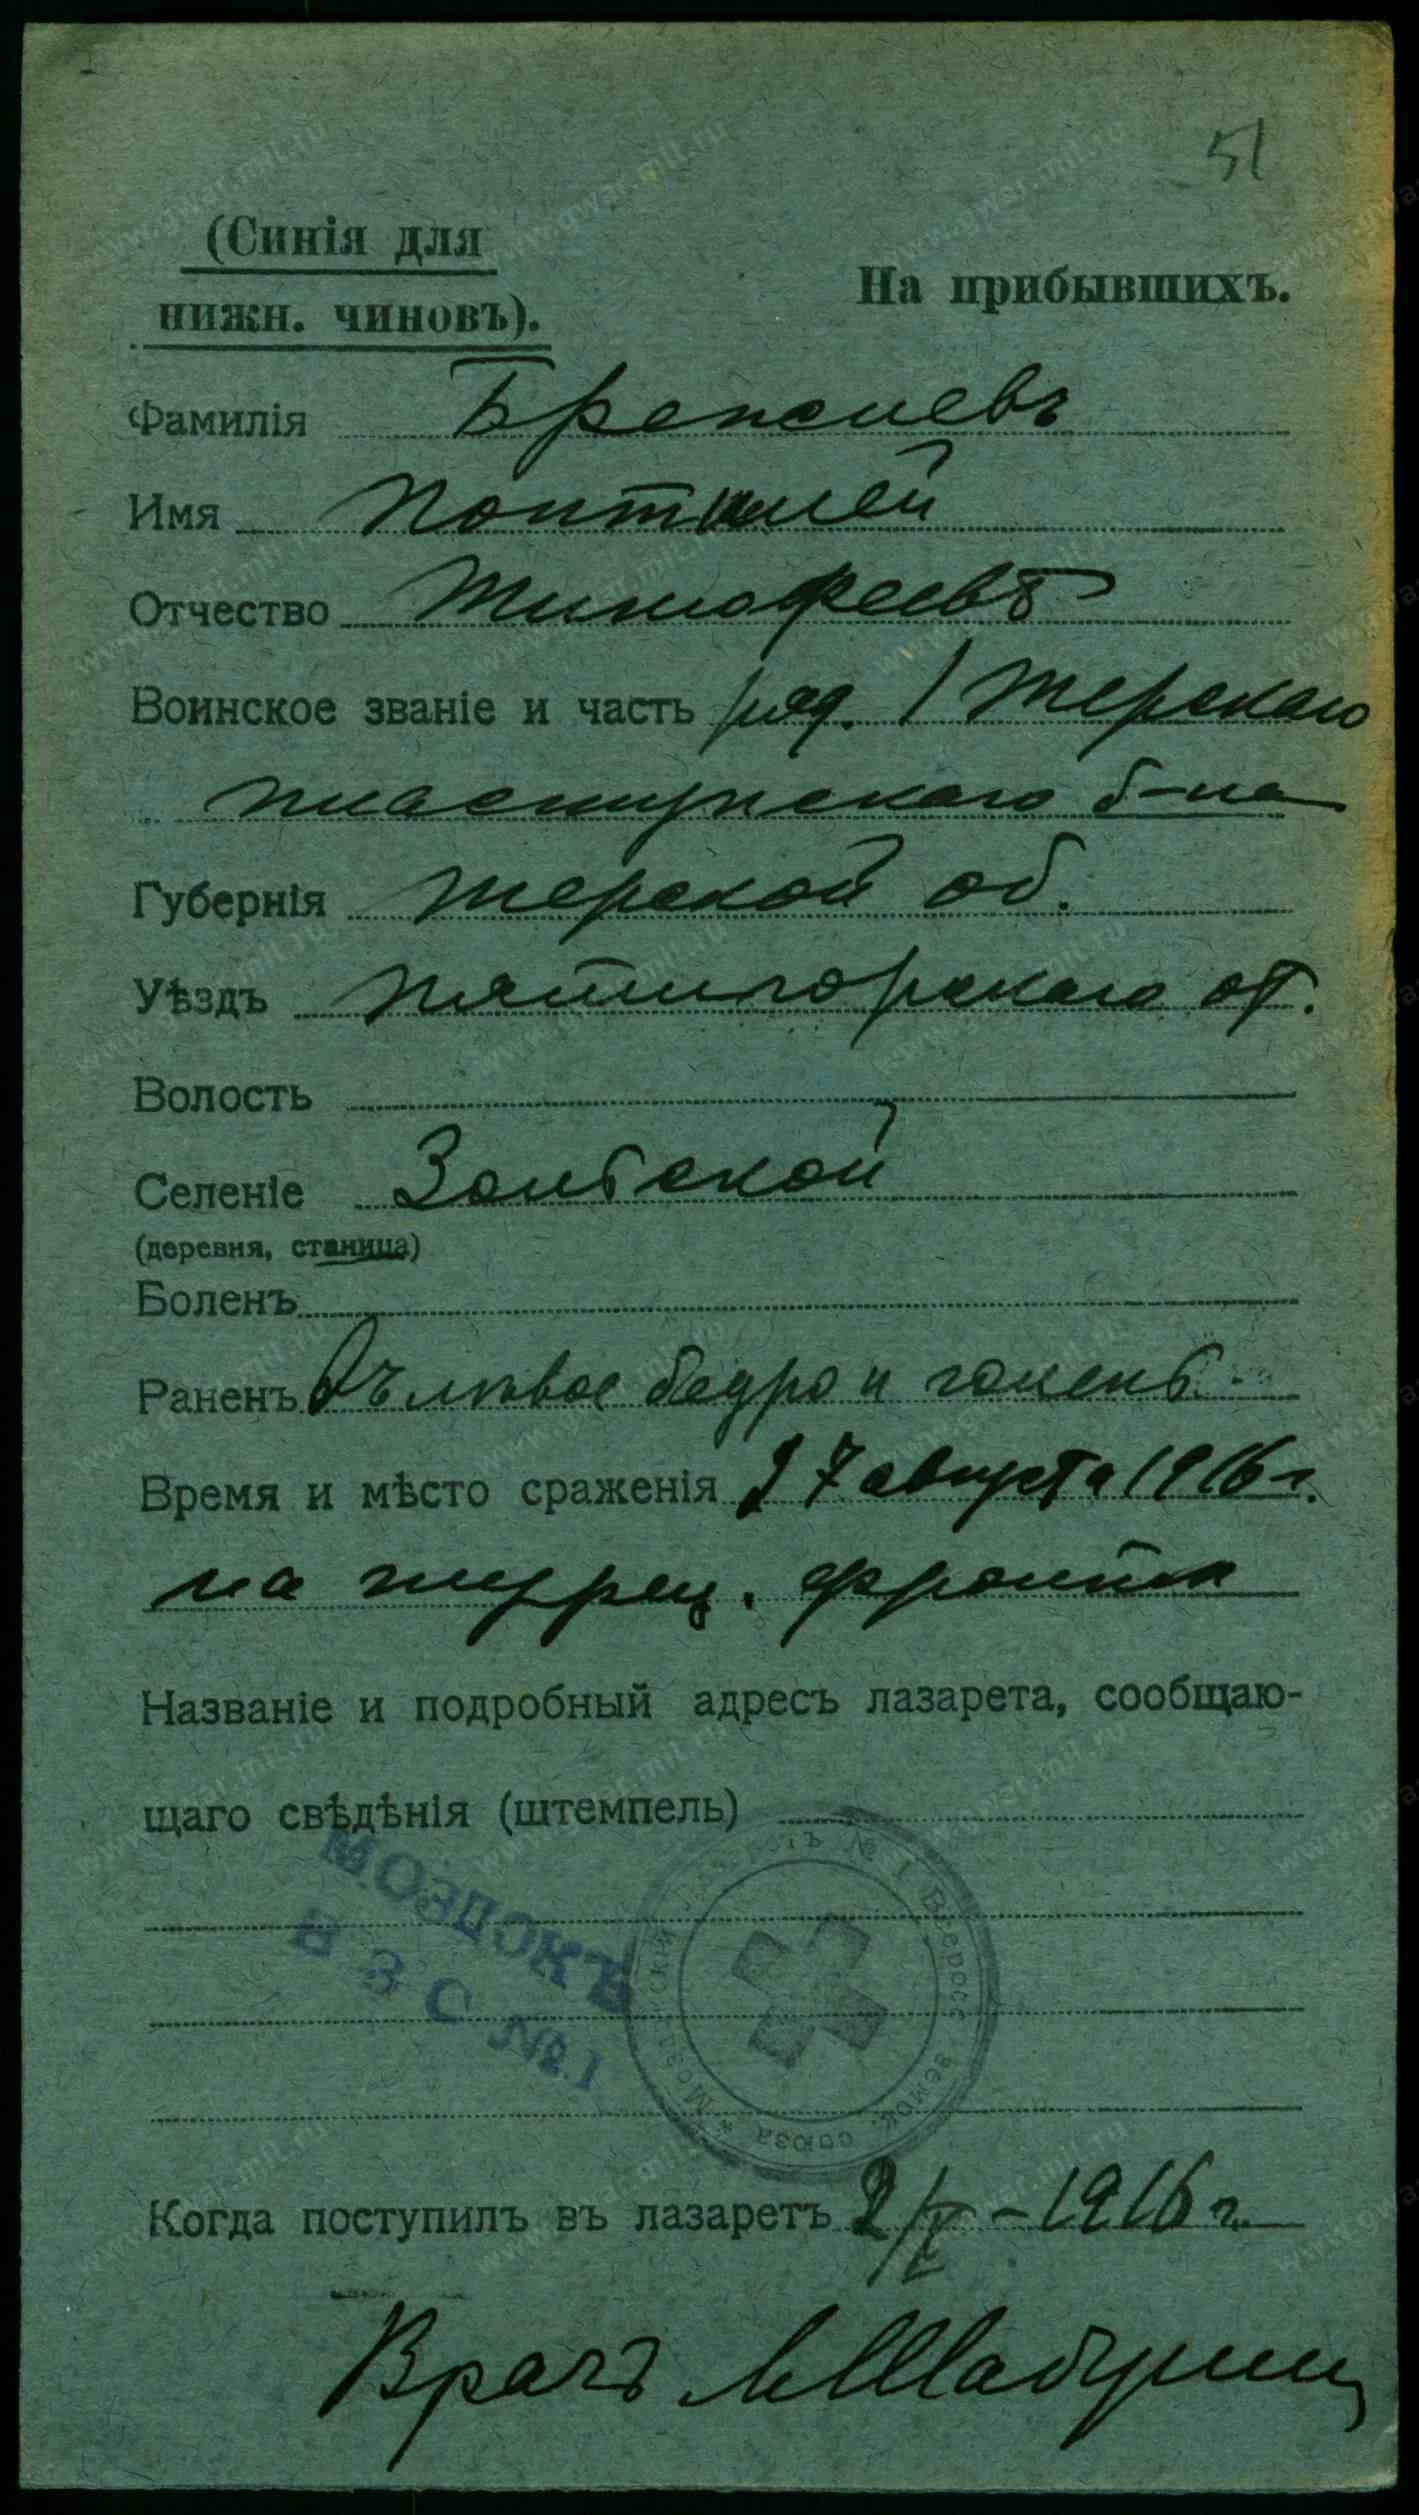 51
(Синія для
нижн. чиновъ).
На прибывшихъ.
Фамилія Брежневъ
Имя Понтилей
Отчество Тимофеевъ
Воинское званіе и часть ряд. 1 Терскаго
пластунскаго б-на
Губернія Терской об.
Уѣздъ Пятигорскаго от.
Волость
Селеніе Зольской
(деревня, станица)
Боленъ
Раненъ Въ лѣвое бедро и голень
Время и мѣсто сраженія 27 августа 1916 г.
на турец. фронтѣ
Названіе и подробный адресъ лазарета, сообщаю-
щаго свѣдѣнія (штемпель)
МОЗДОКЪ
В З С №1
союза
Когда поступилъ въ лазаретъ 2/X – 1916 г.
Врачъ
www.gwar.mil.ru